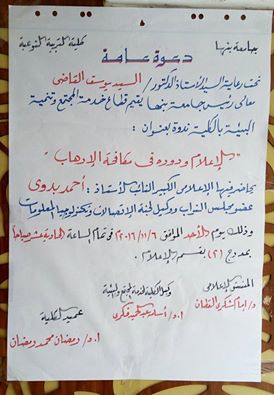 جامعة بنها
كلية التربية النوعية
دعوة عامة
تحت رعاية السيد الأستاذ الدكتور / السيد يوسف القاضى
معالى رئيس جامعة بنها يقيم قطاع خدمة المجتمع وتنمية
البيئة بالكلية ندوة بعنوان :
"الإعلام ودوره فى مكافحة الإرهاب"
يحاضر فيها الإعلامى الكبير النائب الأستاذ : أحمد بدوى
عضو مجلس النواب ووكيل لجنة الإتصالات وتكنولوجيا المعلومات
وذلك يوم الأحد الموافق ٢٠١٦/١١/٦ فى تمام الساعة الحادية عشر صباحاً
بمدرج (٢) بقسم الإعلام .
المنسق الإعلامى
وكيل الكلية لخدمة المجتمع والبيئة
عميد الكلية
د/ إيمان شكرى القطان
ا.د/ أسامة عبد الحميد فكرى
ا.د/ رمضان محمد رمضان